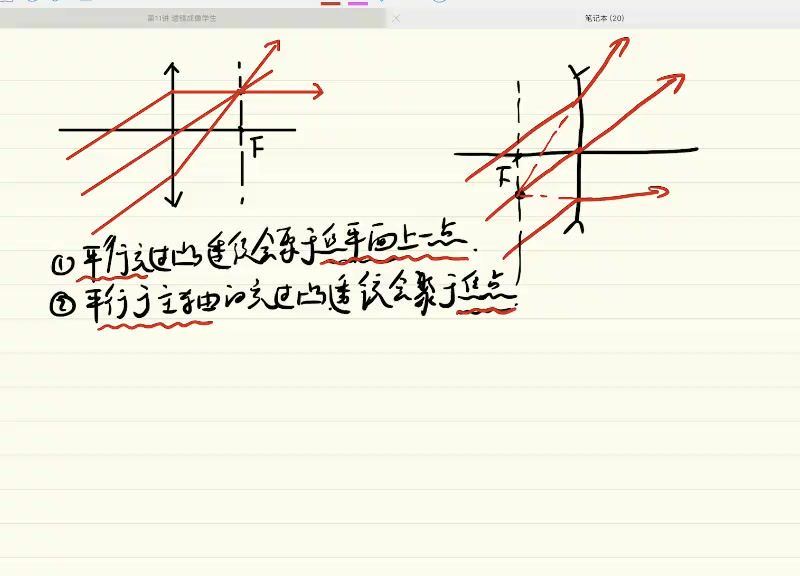 第11讲 透镜成像学生
笔记本 (20)
F
F
①平行光过凸透镜会聚于焦平面上一点.
②平行于主轴的光过凸透镜会聚于焦点.